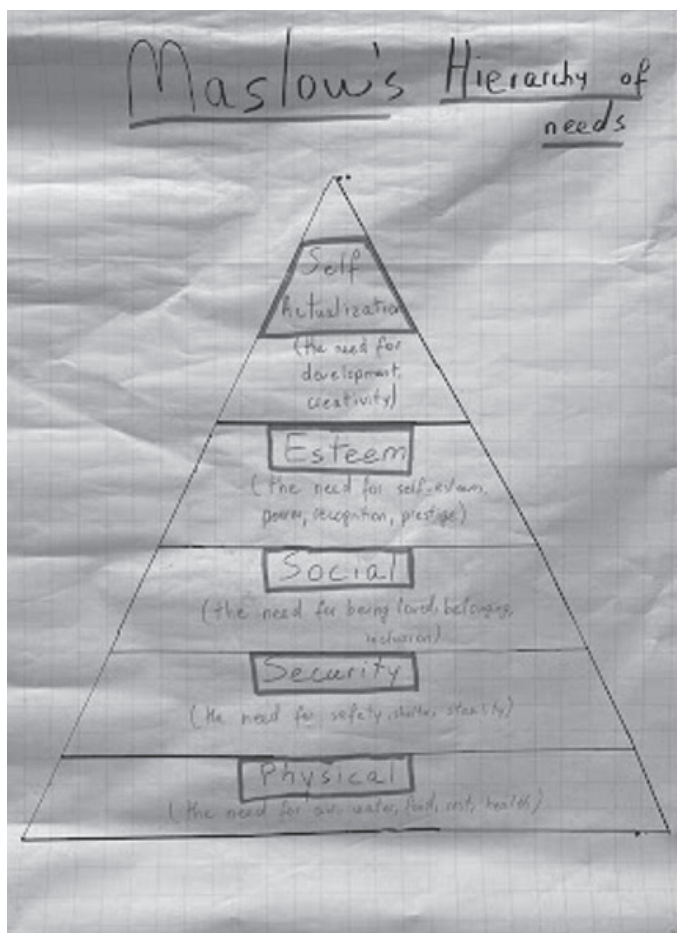 Maslow's Hierarchy of
needs
Self
Actualization
(the need for
development,
creativity)
Esteem
(the need for self-esteem,
power, recognition, prestige)
Social
(the need for being loved, belonging,
inclusion)
Security
(the need for safety, shelter, stability)
Physical
(the need for air, water, food, rest, health)